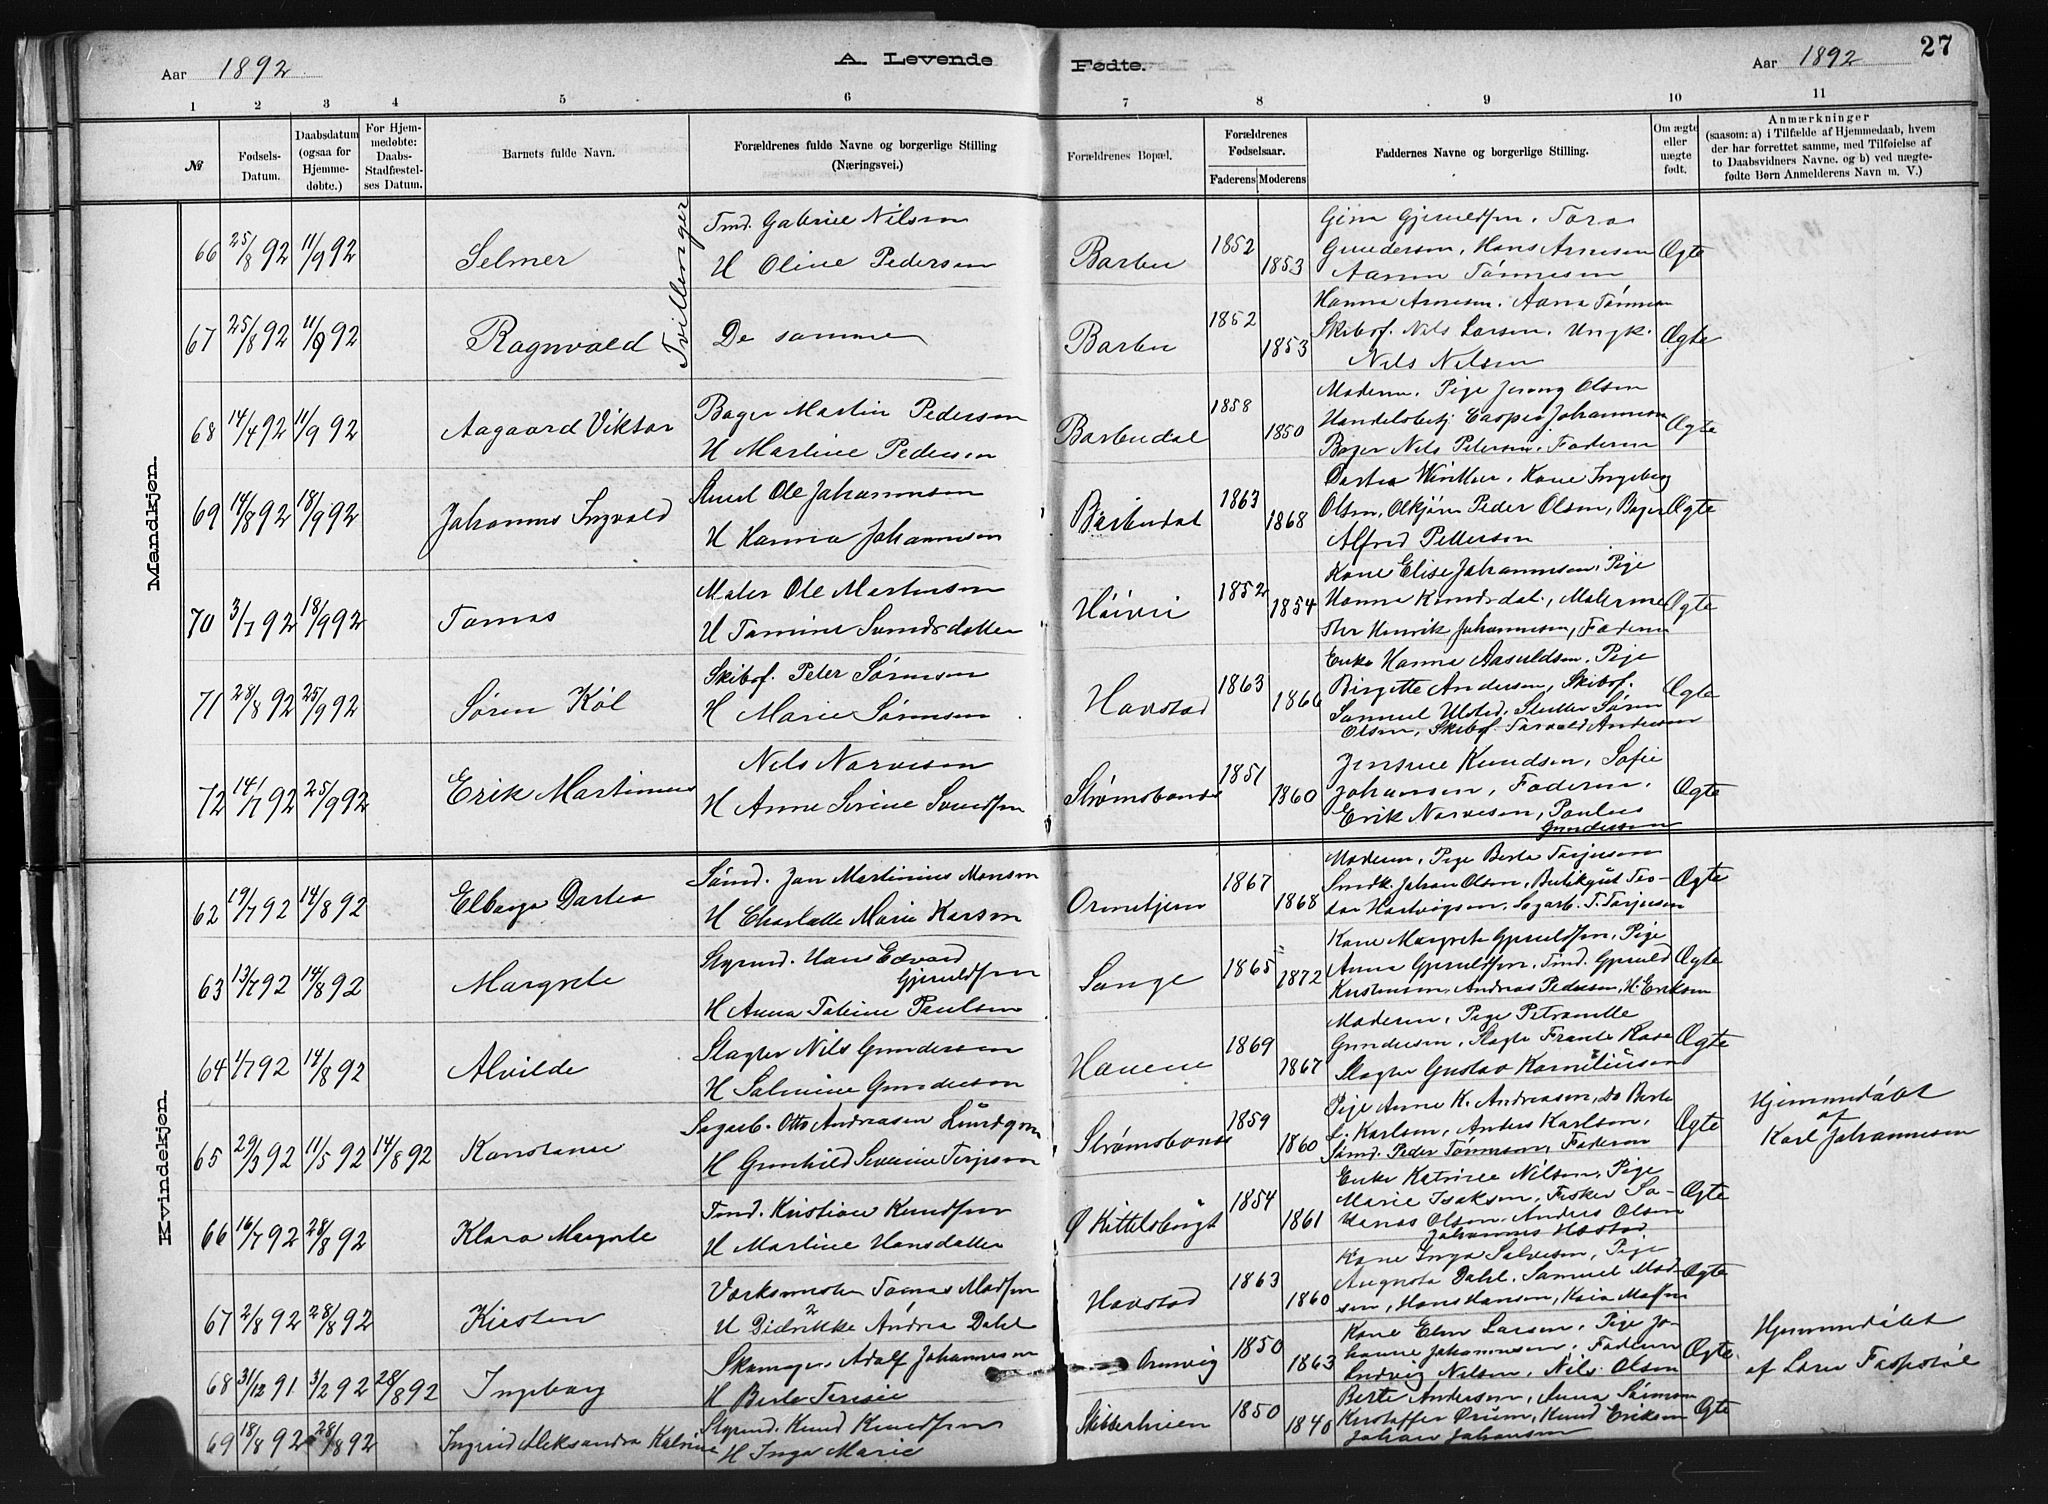 Aar 1892
A. Levende
Fødte.
Aar 1892
27
1 2 3 4 5 6 7 8 9 10 11
№
Fødsels-
Datum.
Daabsdatum
(ogsaa for
Hjemme-
døbte.)
For Hjem-
medøbte:
Daabs-
Stadfæstel-
ses Datum.
Barnets fulde Navn.
Forældrenes fulde Navne og borgerlige Stilling
(Næringsvei.)
Forældrenes Bopæl.
Forældrenes
Fødselsaar.
Faderens Moderens
Faddernes Navne og borgerlige Stilling.
Om ægte
eller
uægte
født.
Anmærkninger
(saasom: a) i Tilfælde af Hjemmedaab, hvem
der har forrettet samme, med Tilføielse af
to Daabsvidners Navne. og b) ved uægte-
fødte Børn Anmelderens Navn m. V.)
Mandkjøn.
Tvillinger
66 25/8 92 11/9 92 Selmer
Tmd. Gabriel Nilsen
H Oline Pedersen
Barbu 1852 1853
Gjeruldsen, Tora
Gundersen, Hans Arnesen
Aanne Tønnesen
Ægte
67 25/8 92 11/9 92 Ragnvald
De samme
Barbu 1852 1853
Hanna Arnesen, Aanna Tønnesen
Skibsf. Nils Larsen, Ungk.
Nils Nilsen
Ægte
68 14/4 92 11/9 92 Aagaard Viktor
Bager Martin Pedersen
H Martine Pedersen
Barbudal 1858 1850
Moderen, Pige Jenny Olsen
Handelsbetj. Casper Johannesen
Bager Nils Petersen, Faderen
Ægte
69 14/8 92 18/9 92 Johannes Ingvald
Ole Johannesen
H Hanna Johannesen
Barbudal 1863 1868
Dortea Winther, Kone Ingeborg
Olsen, Peder Olsen, Bager
Alfred Pettersen
Ægte
70 3/7 92 18/9 92 Tomas
Maler Ole Martinsen
H Tomine Svendsdatter
1852 1854
Kone Elise Johannesen, Pige
Hanna Knudsdal, Malerme-
ster Henrik Johannesen, Faderen
Ægte
71 28/8 92 25/9 92 Søren Køl
Skibsf. Peter Sørensen
H Marie Sørensen
Havstad 1863 1866
Enke Hanna Aasuldsen, Pige
Birgitte Andersen, Skibsf.
Samuel Ulsted, Søren
Olsen, Skibsf. Torvald Andersen
Ægte
72 14/7 92 25/9 92 Erik Martinius
Nils Narvesen
H Anne Serine Svendsen
Strømsbonde 1851 1860
Jensine Knudsen, Sofie
Johansen, Faderen,
Erik Narvesen, Paulus
Gundersen
Ægte
Kvindekjøn.
62 19/7 92 14/8 92 Elborga Dortea
Sømd. Jan Martinius Monsen
H Charlotte Marie Karsen
1867 1868
Moderen, Pige Berte Torjusen
Smdk. Johan Olsen, Butikgut Teo-
dor Hartvigsen, Sagarb. T. Torjusen
Ægte
63 13/7 92 14/8 92 Margrete
Styrmd. Hans Edvard
Gjeruldsen
H Anna Tobine Paulsen
Songe 1865 1872
Kone Margrete Gjeruldsen, Pige
Anna Gjeruldsen, Tmd. Gjeruld
Kristensen, Andreas Pedersen, H. Eriksen
Ægte
64 1/7 92 14/8 92 Alvilde
Slagter Nils Gundersen
H Salmine Gundersen
Havene 1869 1867
Moderen, Pige Petronelle
Gundersen, Slagter
Slagter Gustav Korneliusen
Ægte
65 29/3 92 11/5 92 14/8 92 Konstance
Sagarb. Otto Andreasen Lundqvis
H Gunhild Severine Terjesen
Strømsbonde 1859 1860
Pige Anne K. Andreasen, Do Berte
L. Karlsen, Anders Karlsen,
Sømd. Peder Tønnesen, Faderen
Ægte
Hjemmedøbt
af
Karl Johannesen
66 16/7 92 28/8 92 Klara Margrete
Tmd. Kristian Knudsen
H Martine Hansdatter
Ø Kittelsbugt 1854 1861
Enke Katrine Nilsen, Pige
Marie Isaksen, Fisker Jo-
hannes Olsen, Anders Olsen
Johannes Hæstad
Ægte
67 2/8 92 28/8 92 Kirsten
Værksmester Tomas Madsen
H Didrikke Andrea Dahl
Havstad 1863 1860
Kone Inga Salvesen, Pige
Augusta Dahl, Samuel Mad-
sen, Hans Hansen, Kaia
Ægte
68 31/12 91 3/2 92 28/8 92 Ingeborg
Skomager Adolf Johannesen
H Berte Terisie
Ormvig 1850 1863
Kone Elen Larsen, Pige Jo-
hanne Johannesen, Faderen
Ludvig Nilsen, Nils Olsen
Ægte
Hjemmedøbt
af Lars
69 18/8 92 28/8 92 Ingrid Aleksandra Katrine
Styrmd. Knud Knudsen
H Inga Marie
1850 1840
Berte Andersen, Anna Simonsen
Kristoffer Ørum, Knud Eriksen
Johan Johansen
Ægte